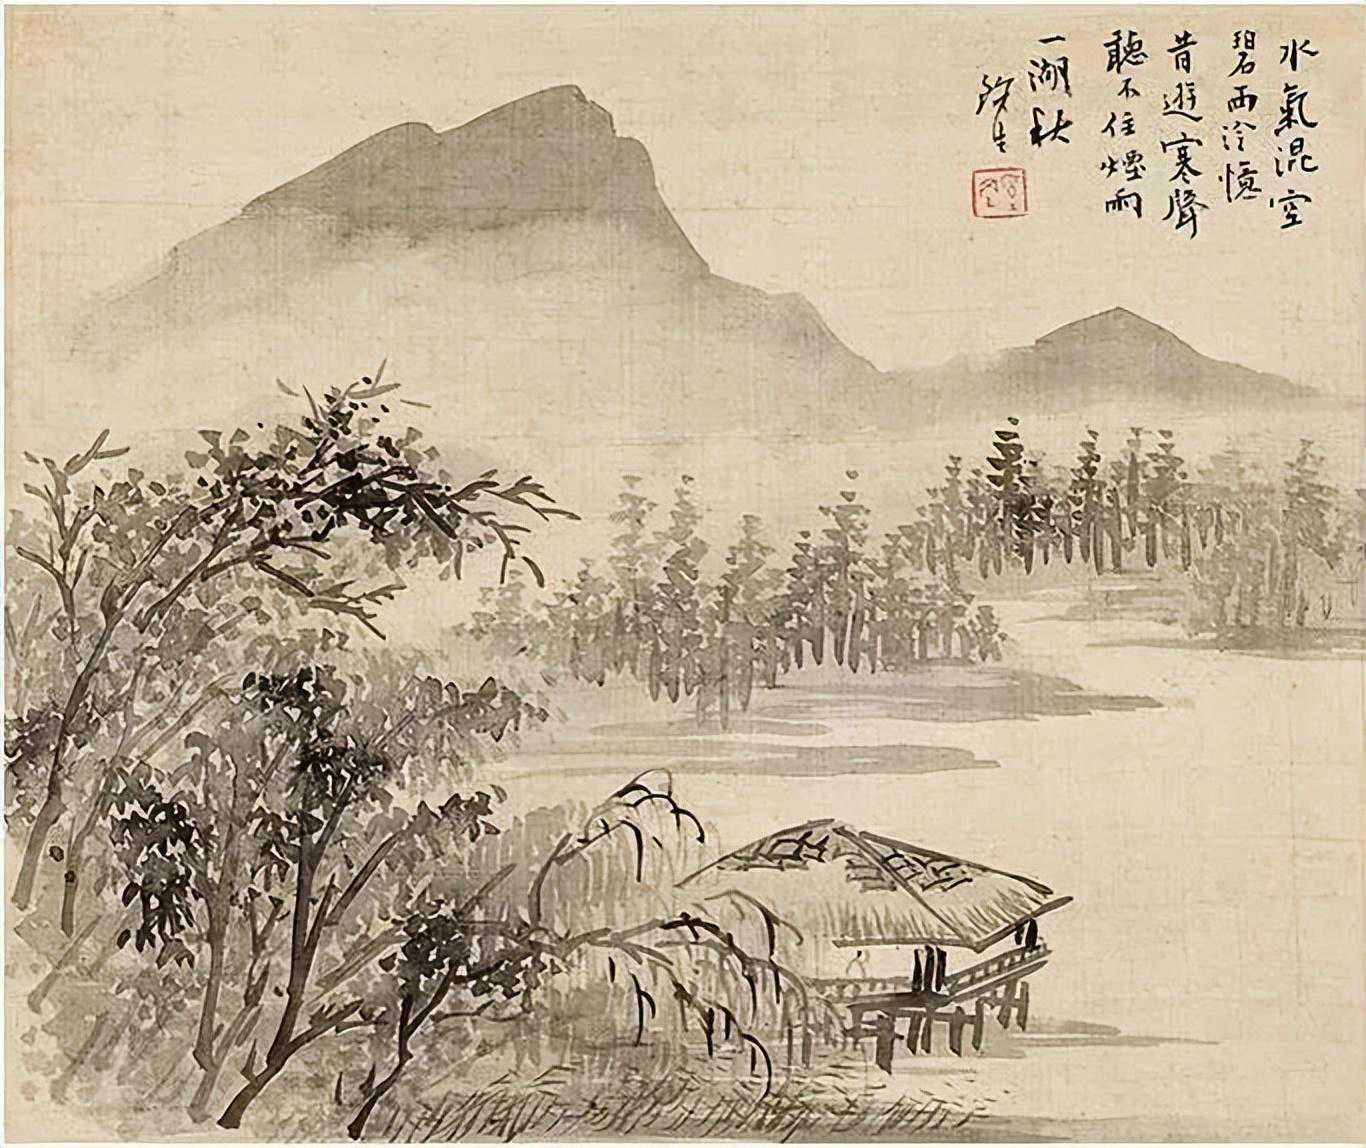 水氣混空
碧西泠憶
昔遊寒聲
聽不住煙雨
一湖秋
銕生